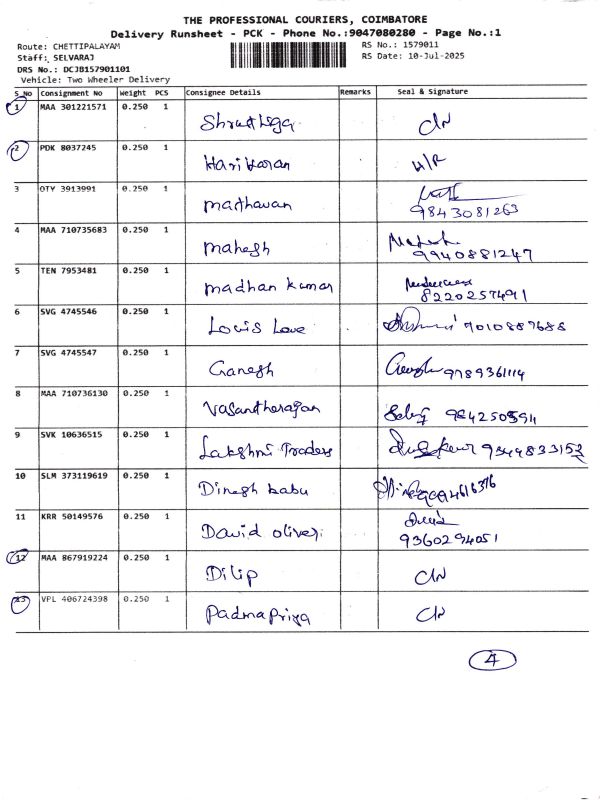 THE PROFESSIONAL COURIERS, COIMBATORE
Delivery Runsheet - PCK - Phone No.:9047080280 - Page No.:1
Route: CHETTIPALAYAM RS No.: 1579011
Staff: SELVARAJ RS Date: 10-Jul-2025
DRS No.: DCJB157901101
Vehicle: Two Wheeler Delivery
S_No Consignment No Weight PCS Consignee Details Remarks Seal & Signature
1 MAA 301221571 0.250 1 C/N
2 PDK 8037245 0.250 1 Hariharan H/R
3 OTY 3913991 0.250 1 Madhavan 9843081263
4 MAA 710735683 0.250 1 Mahesh 9940881247
5 TEN 7953481 0.250 1 madhan kumar 8220257491
6 SVG 4745546 0.250 1 Louis Love
7 SVG 4745547 0.250 1 Ganesh 9789361114
8 MAA 710736130 0.250 1 Vasantharajan
9 SVK 10636515 0.250 1 Lakshmi Traders 9344833152
10 SLM 373119619 0.250 1 Dinesh babu
11 KRR 50149576 0.250 1 David oliver 9360294051
12 MAA 867919224 0.250 1 Dilip C/N
13 VPL 406724398 0.250 1 Padmapriya C/N
4